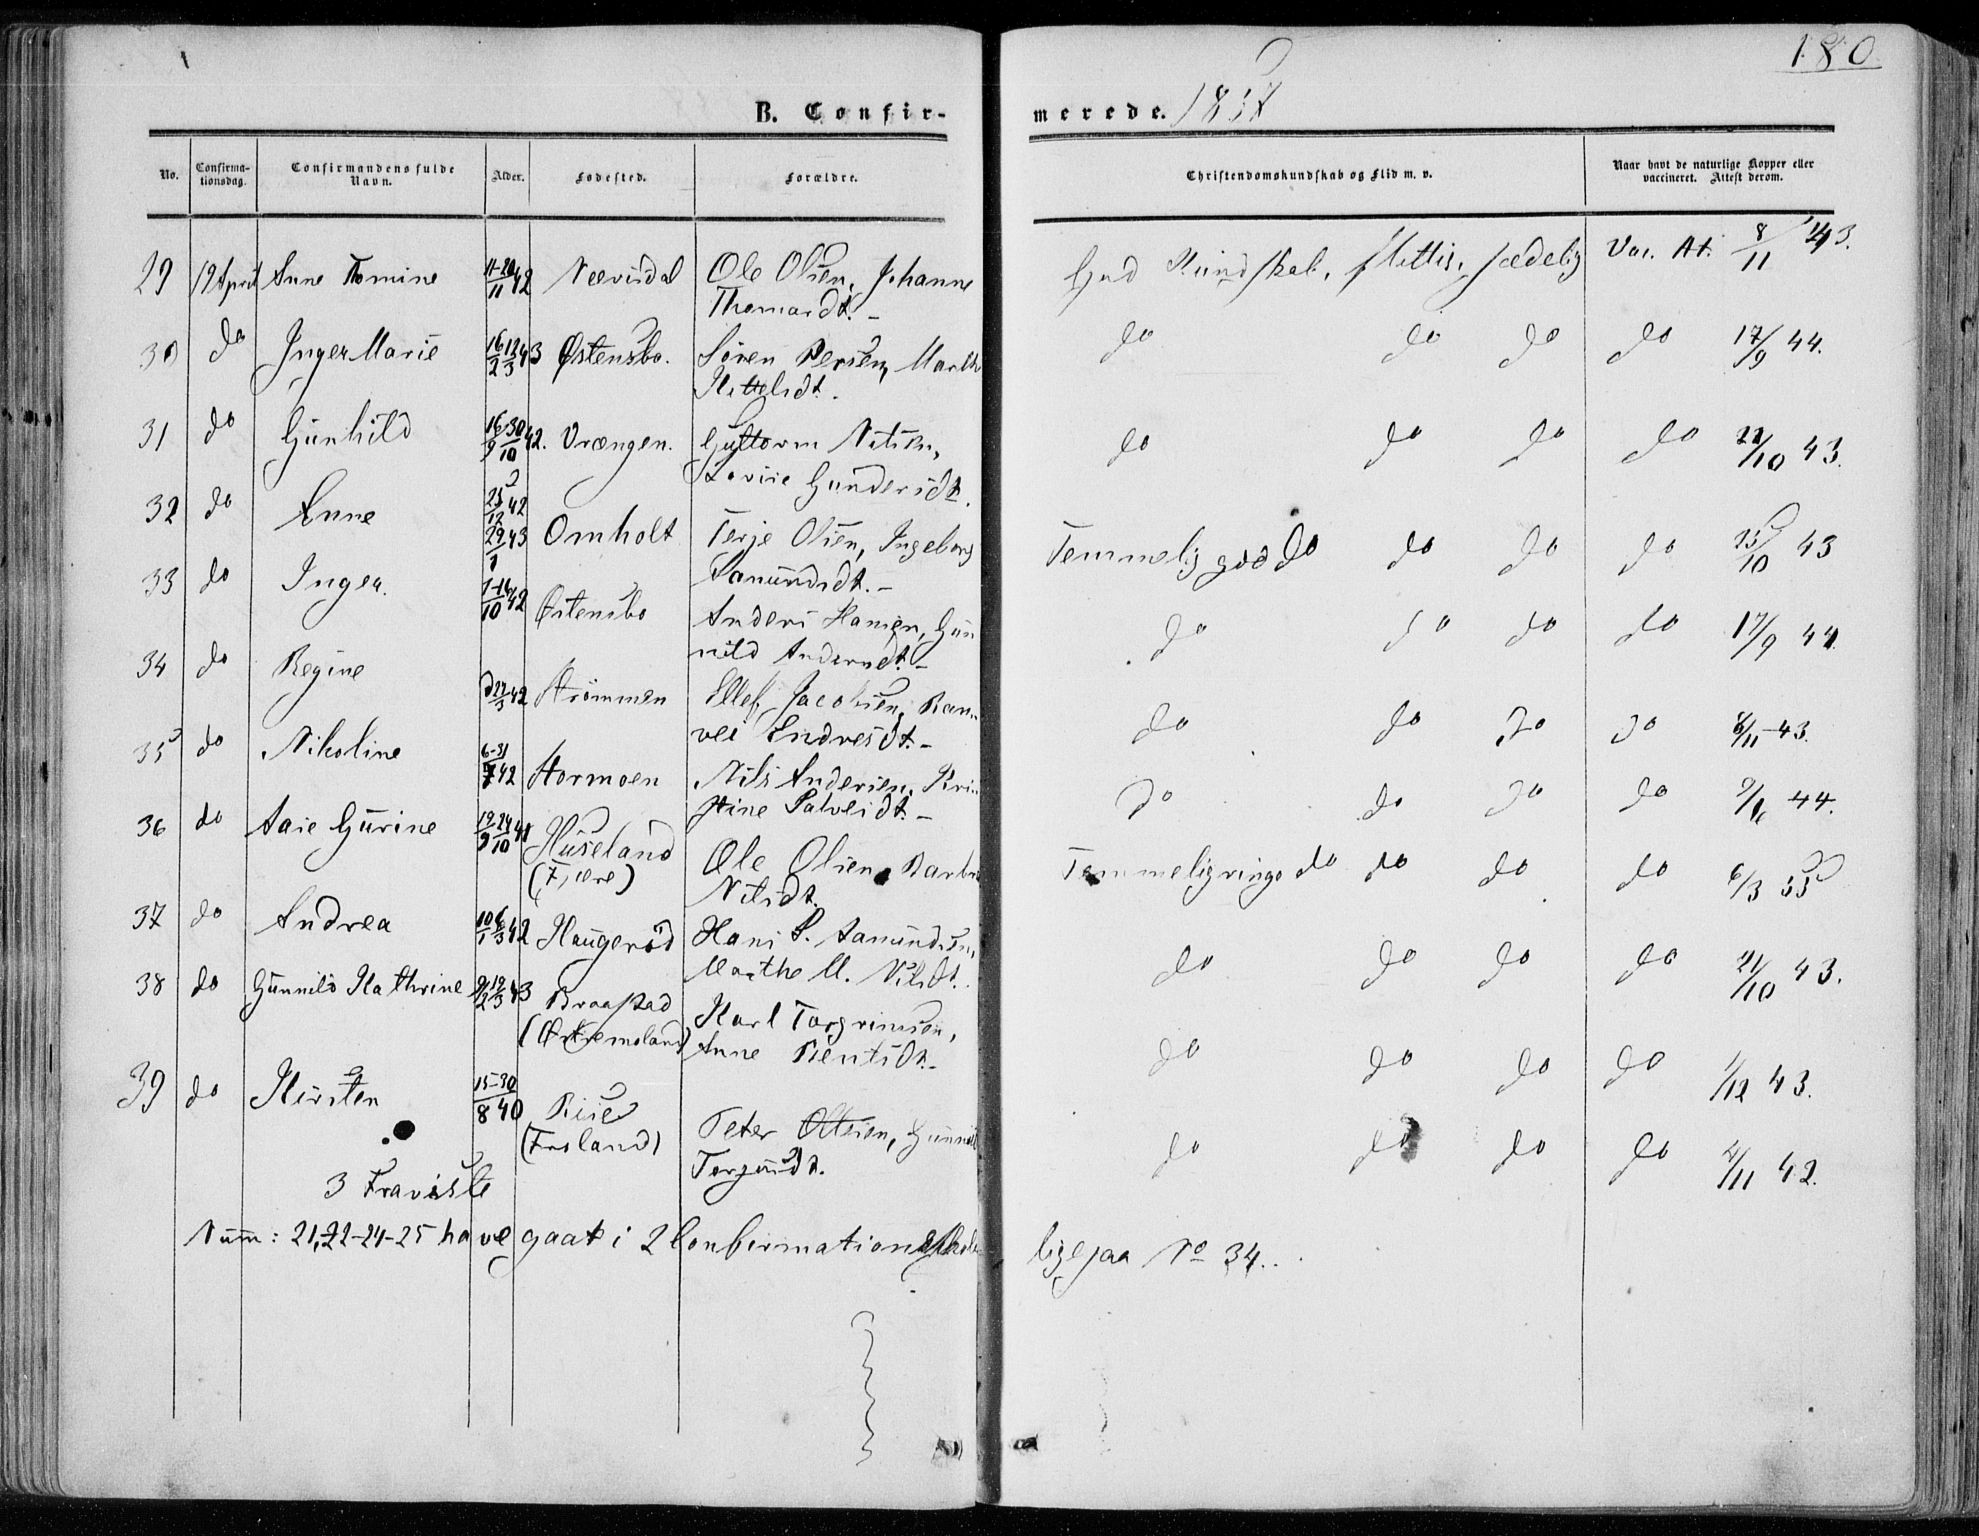 180.
B. Confirmerede. 1857
No. Confirmationsdag. Confirmandens fulde Navn. Alder. Fødested. Forældre. Christendomskundskab og Flid m. v. Naar havt de naturlige Kopper eller vaccineret. Attest derom.
29 19 April Anne Tomine 11-20/11 42 Nævisdal Ole Olsen, Johanne God Kundskab, flittig, sædelig Vac. At. 8/11 43.
Thomasdt. –
30 do Inger Marie 16/2 12/3 43 Østensbo. Søren Persen, Marth do do do do 17/9 44.
Kittelsdt.
31 do Gunhild 16/9 30/10 42. Vrængen. Guttorm Nilsen, do do do do 22/10 43.
Lovise Gundersdt.
32 do Anne 25/12 42 29/1 43 Omholt Terje Olsen, Ingeborg Temmelig god do do do do 25/10 43
Aanundsdt. –
33 do Inger. 1-16/10 42 Østensbo Anders Hansen, Gun do do do do 17/9 44
nild Andersdt. –
34 do Regine 42 Strømmen Ellef Jacobsen, Ran- do do do do 8/11 – 43.
vei Endresdt. –
35 do Nikoline 6-31/7 42 Stormoen Nils Andersen, Kri do do do do 9/6 44.
stine Salvesdt. –
36 do Aase Gurine 19/9 24/10 41 Huseland Ole Olsen, Barbr Temmelig ringe do do do do 6/3 55
(Fjære) Nilsdt.
37 do Andrea 10/1 6/3 42 Haugerød Hans P. Aanundsen, do do do do 21/10 43.
Marthe M. Nilsdt.
38 do Gunnild Kathrine 9/2 19/3 43 Braastad Karl Torgrimsen, do do do do 1/12 43.
(Østremoland) Anne Bentsdt. –
39 do Kirsten 15-30/8 40 Rise Peter Olsen, Gunnild do do do do 4/11 42.
(Froland) Torjusdt.
3 Fraviste
Num: 21,-22-24-25 have gaat i 2 Confirmationsskoler
ligesaa No 34..